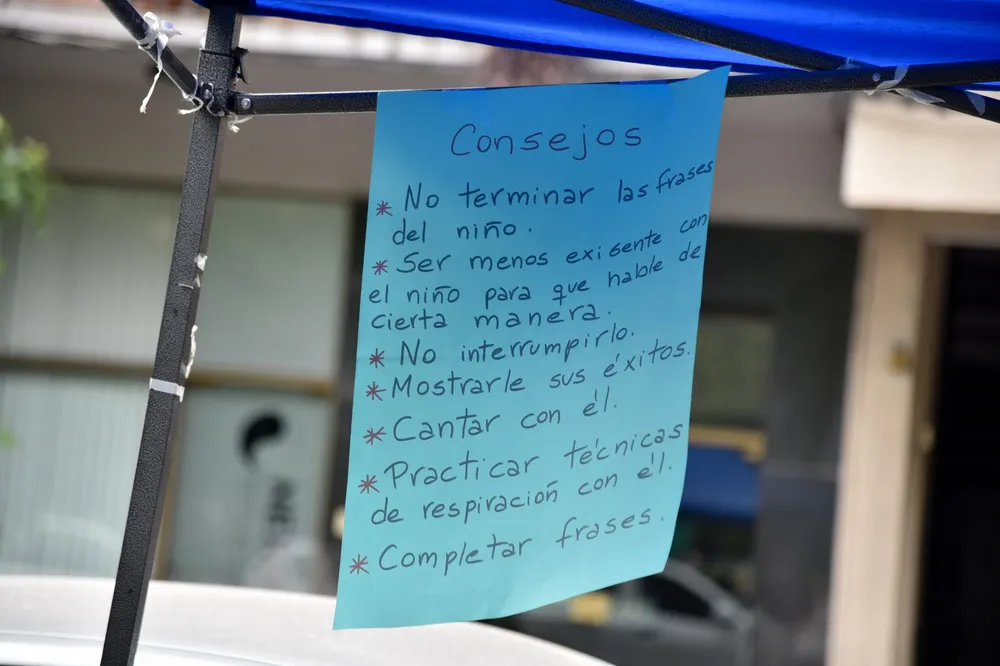 Consejos
* No terminar las frases
del niño.
* Ser menos exigente con
el niño para que hable de
cierta manera.
* No interrumpirlo.
* Mostrarle sus éxitos.
* Cantar con él.
* Practicar técnicas
de respiración con él.
* Completar frases.